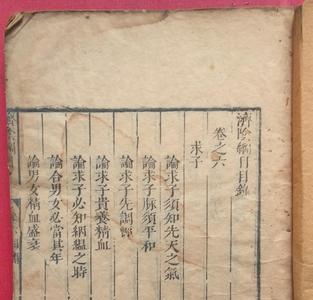 濟陰綱目目錄
卷之六
求子
論求子須知先天之氣
論求子脈須平和
論求子先調經
論求子貴養精血
論求子必知絪縕之時
論合男女必當其年
論男女精血盛衰